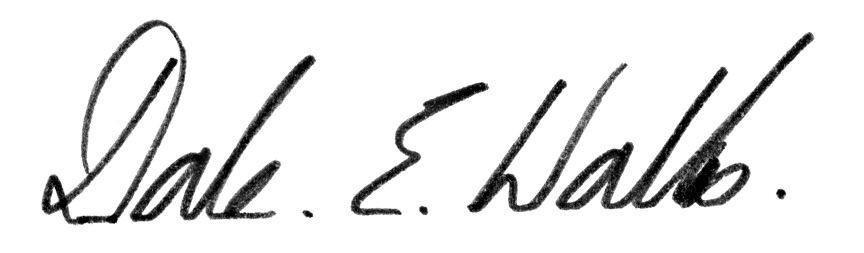 Dale. E. Walks.